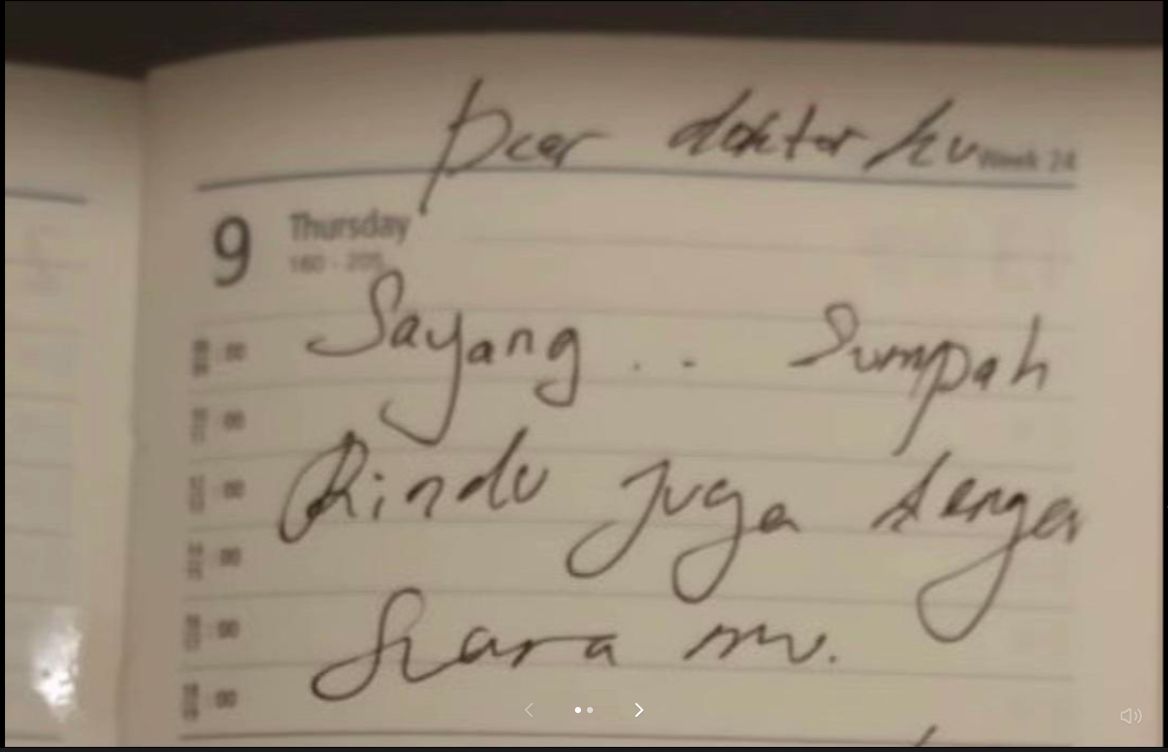 Dear doktor ku
Week 24
9 Thursday
160 - 205
Sayang .. Sumpah
00
00
Rindu juga denger
00
00
Suara mu.
00
00